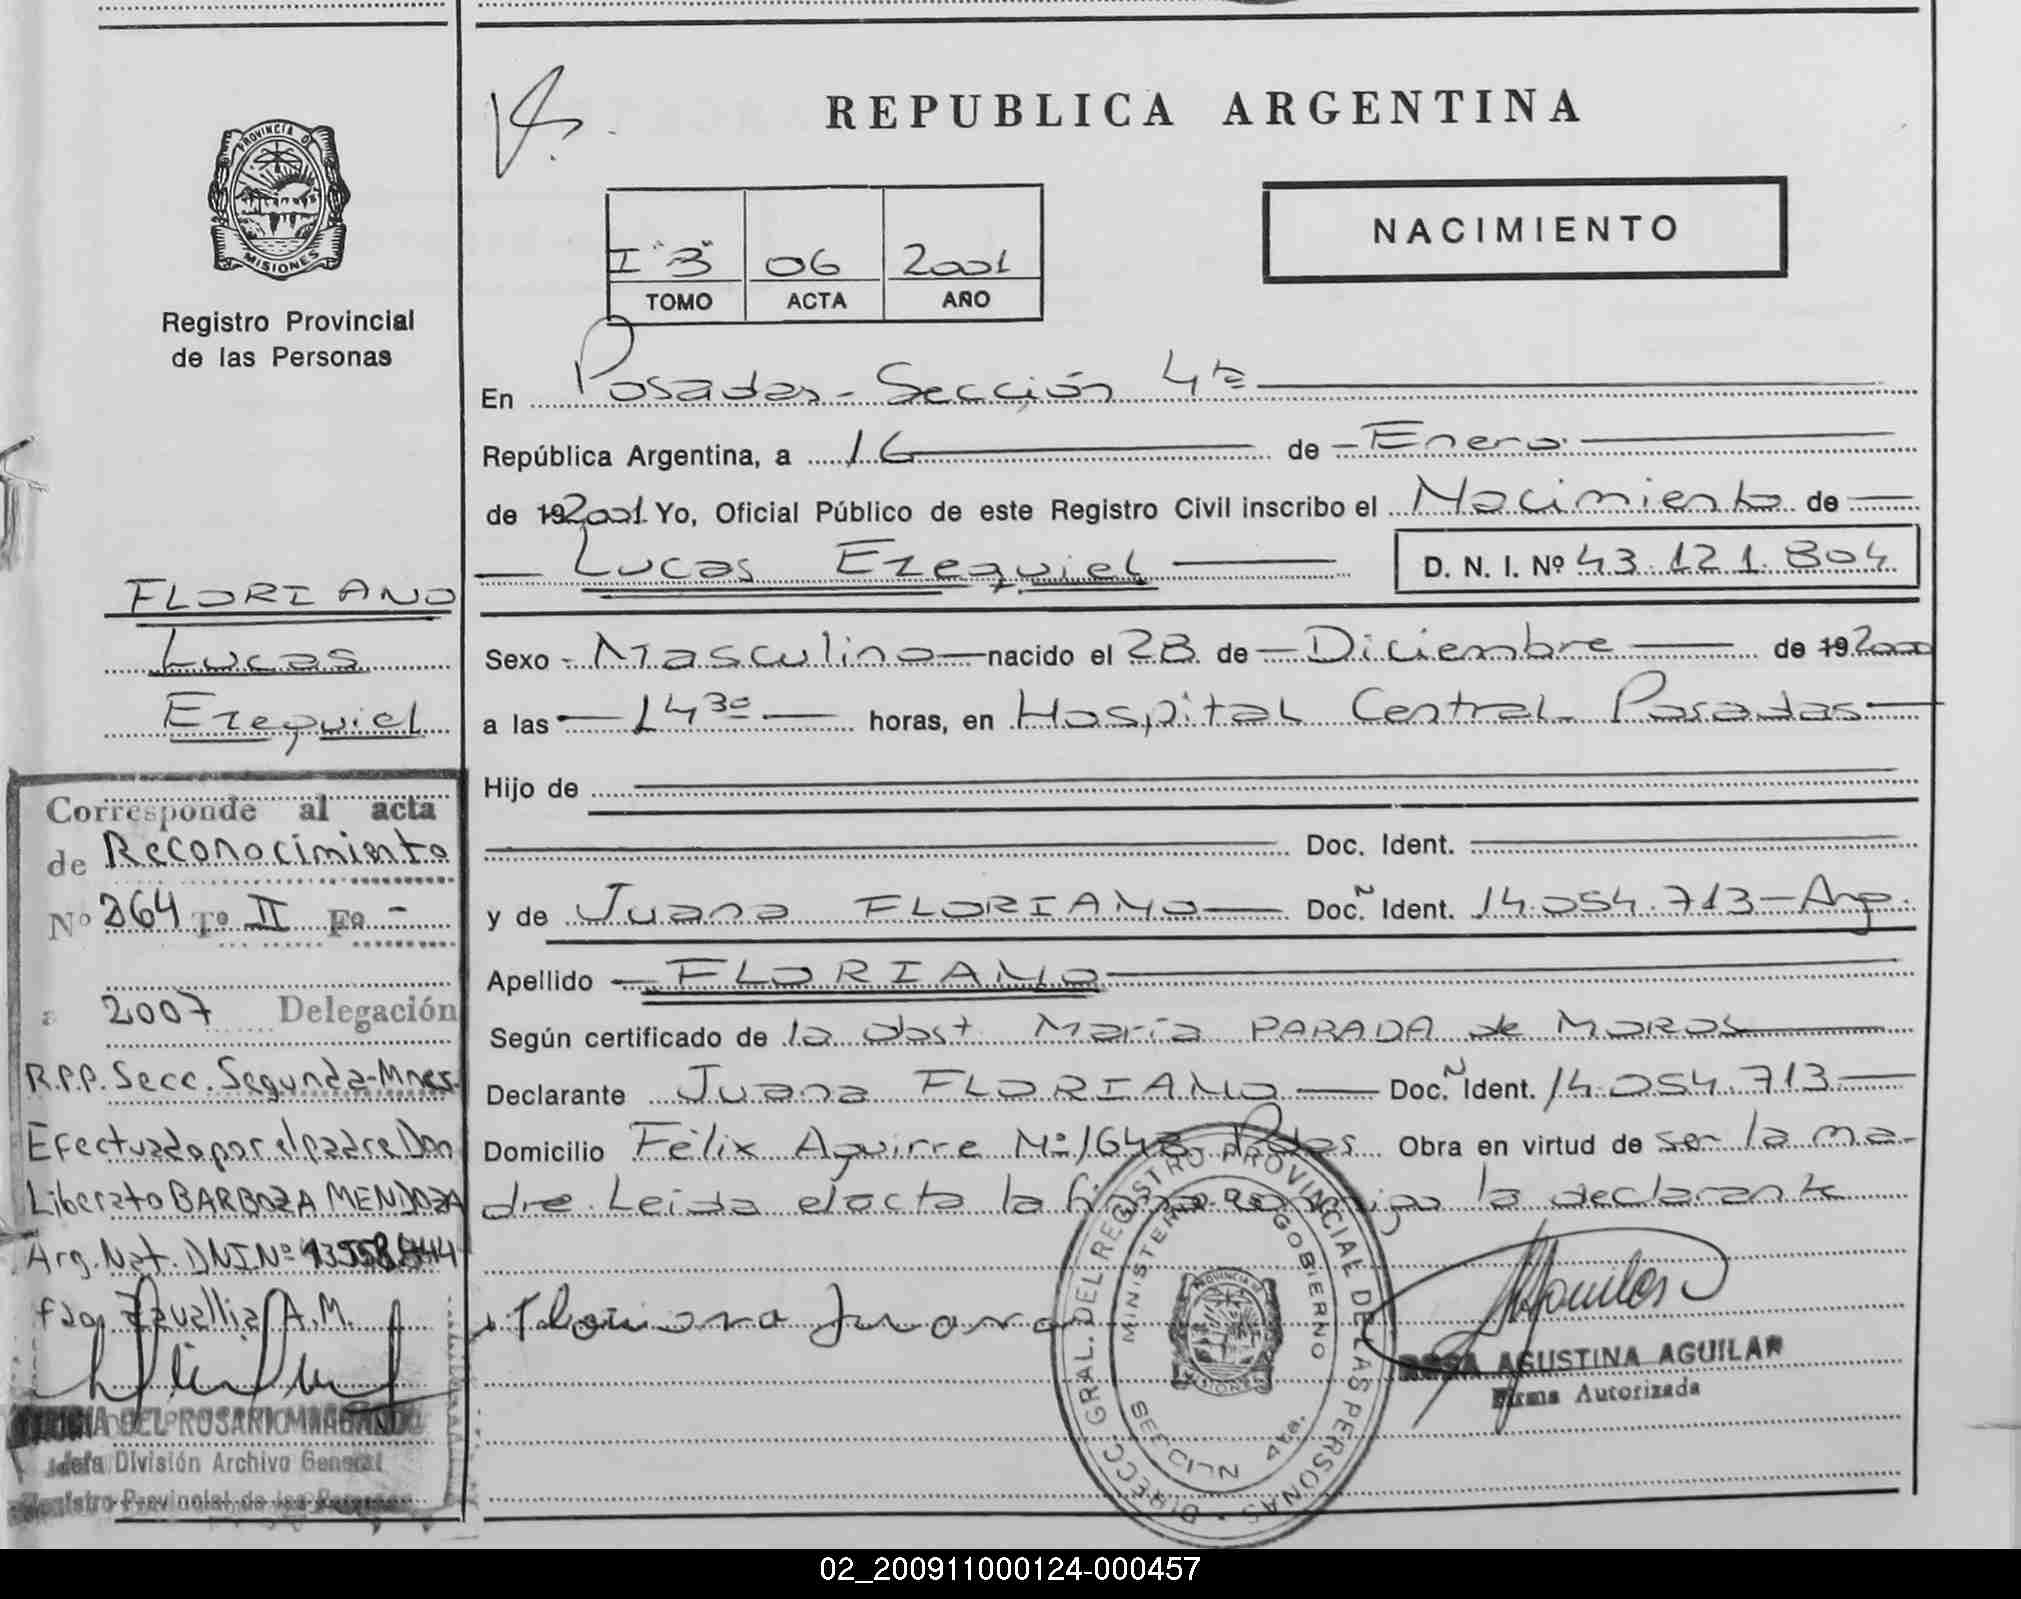 PROVINCIA DE
MISIONES
Registro Provincial
de las Personas
FLORIANO
Lucas
Ezequiel
Corresponde al acta
de Reconocimiento
Nº 264 Tº II Fº -
a 2007 Delegación
R.P.P. Secc. Segunda-Mnes.
Efectuado por el padre Don
Liberato BARBOZA MENDOZA
Arg. Nat. DNI Nº
A.M.
DEL ROSARIO
Jefa División Archivo General
Registro Provincial de las Personas
REPUBLICA ARGENTINA
NACIMIENTO
I "B" 06 2001
TOMO ACTA AÑO
En Posadas - Sección 4ta
República Argentina, a 16 de Enero
de 192001 Yo, Oficial Público de este Registro Civil inscribo el Nacimiento de
Lucas Ezequiel D. N. I. Nº 43.121.804
Sexo - Masculino nacido el 28 de Diciembre de 19 2000
a las 14 30 horas, en Hospital Central Posadas
Hijo de
Doc. Ident.
y de Juana FLORIANO Doc. N Ident. 14.054.713 - Arg.
Apellido FLORIANO
Según certificado de la obst. María PARADA de MOROS
Declarante Juana FLORIANO Doc. N Ident. 14.054.713
Domicilio Félix Aguirre Nº 1648 Pdas Obra en virtud de ser la ma-
dre. Leida el acta la firma conmigo la declarante
Floriano Juana
DIRECC. GRAL. DEL REGISTRO PROVINCIAL DE LAS PERSONAS
MINISTERIO DE GOBIERNO
PROVINCIA DE
MISIONES
SECCION 4ta.
ROSA AGUSTINA AGUILAR
Firma Autorizada
02_200911000124-000457